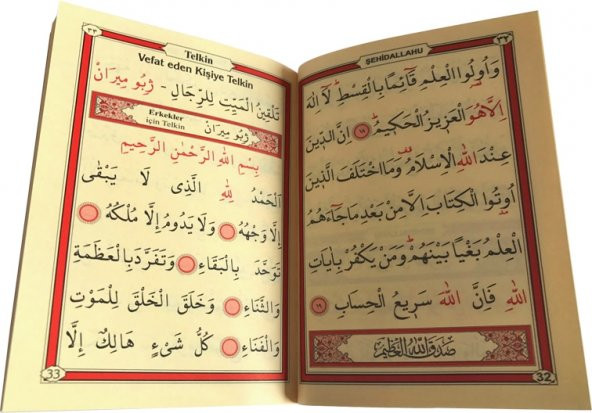 ŞEHİDALLAHU ٣٢
وَاُولُوا الْعِلْمِ قَائِمًا بِالْقِسْطِ لَا اِلٰهَ
اِلَّا هُوَ الْعَزِيزُ الْحَكِيمُ ۝١٨ اِنَّ الدِّينَ
عِنْدَ اللهِ الْاِسْلَامُ وَمَا اخْتَلَفَ الَّذِينَ
اُوتُوا الْكِتَابَ اِلَّا مِنْ بَعْدِ مَا جَاءَهُمُ
الْعِلْمُ بَغْيًا بَيْنَهُمْ وَمَنْ يَكْفُرْ بِاٰيَاتِ
اللهِ فَاِنَّ اللهَ سَرِيعُ الْحِسَابِ ۝١٩
صَدَقَ اللهُ الْعَظِيمُ
32
٣٣ Telkin
Vefat eden Kişiye Telkin
تَلْقِينُ الْمَيِّتِ لِلرِّجَالِ - ژِبُو مِيرَانْ
Erkekler için Telkin ژِبُو مِيرَانْ
بِسْمِ اللهِ الرَّحْمٰنِ الرَّحِيمِ
اَلْحَمْدُ لِلهِ الَّذِى لَا يَبْقٰى
اِلَّا وَجْهُهُ وَلَا يَدُومُ اِلَّا مُلْكُهُ
تَوَحَّدَ بِالْبَقَاءِ وَتَفَرَّدَ بِالْعَظَمَةِ
وَالثَّنَاءِ وَخَلَقَ الْخَلْقَ لِلْمَوْتِ
وَالْفَنَاءِ كُلُّ شَىْءٍ هَالِكٌ اِلَّا
33